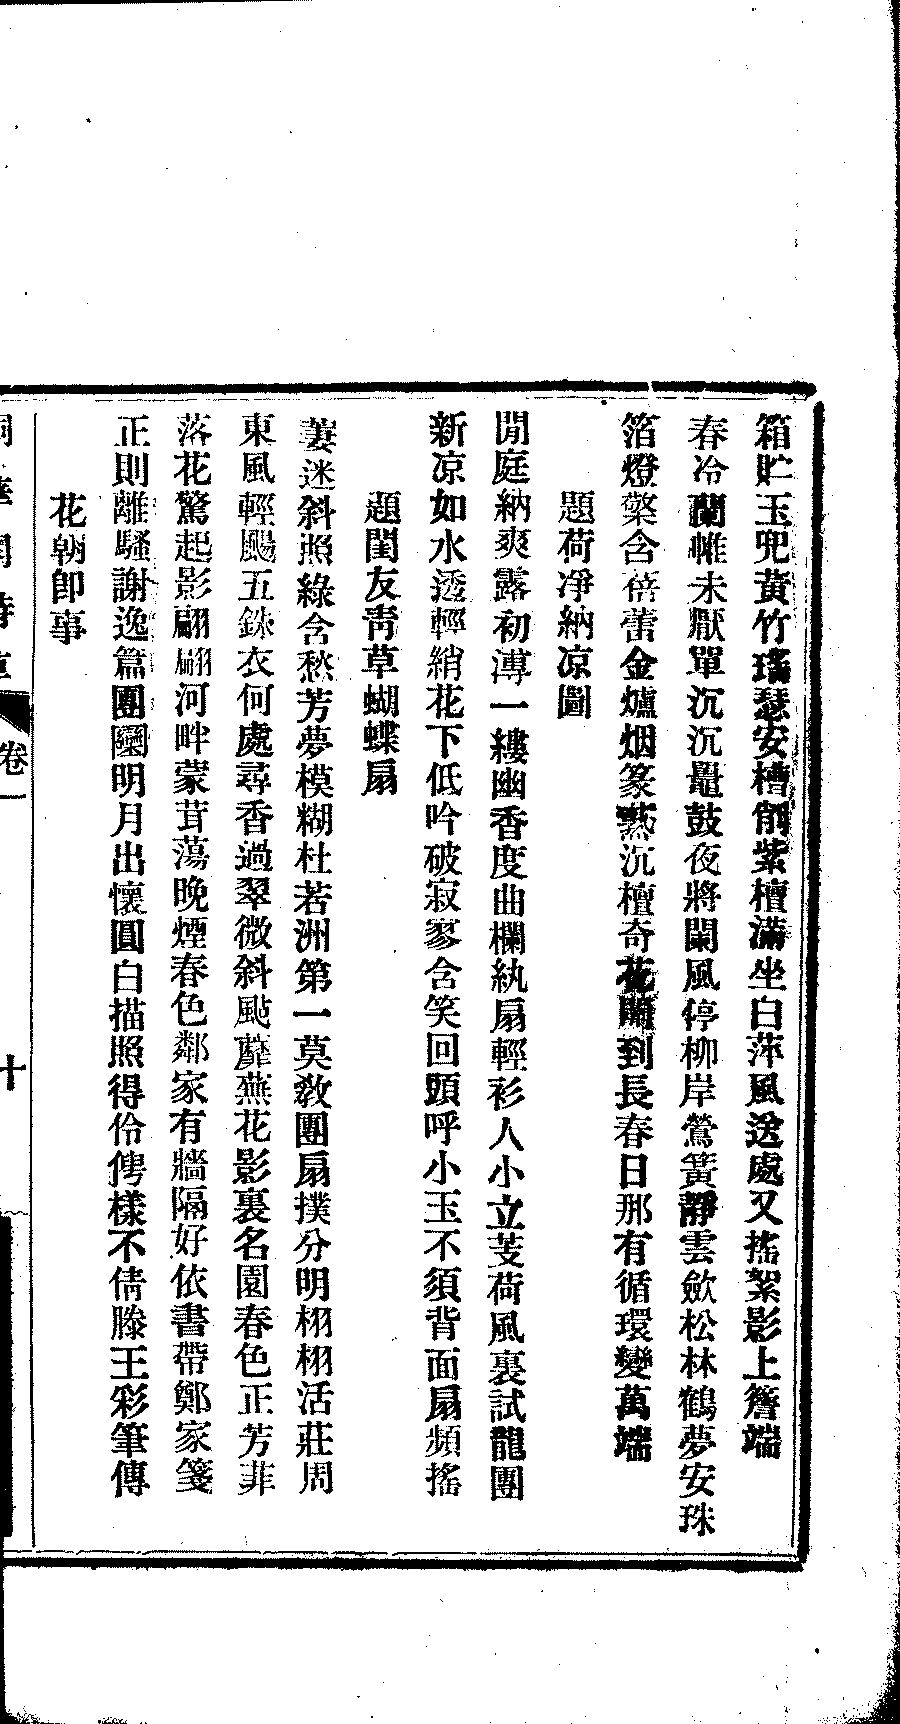 箱貯玉兜黃竹瑤瑟安槽削紫檀滿坐白萍風逸處又搖絮影上簷端
春冷蘭帷未厭單沉沉鼉鼓夜將闌風停柳岸鶯簧靜雲歛松林鶴夢安珠
箔燈檠含蓓蕾金爐烟篆爇沉檀奇花開到長春日那有循環變萬端
題荷凈納凉圖
閒庭納爽露初漙一縷幽香度曲欄紈扇輕衫人小立芰荷風裏試龍團
新凉如水透輕綃花下低吟破寂寥含笑回頭呼小玉不須背面扇頻搖
題閨友靑草蝴蝶扇
萋迷斜照綠含愁芳夢模糊杜若洲第一莫敎團扇撲分明栩栩活莊周
東風輕颺五銖衣何處尋香過翠微斜颭蘼蕪花影裏名園春色正芳菲
落花驚起影翩翩河畔蒙茸蕩晚煙春色鄰家有牆隔好依書帶鄭家箋
正則離騷謝逸篇團圞明月出懷圓白描照得伶俜樣不倩滕王彩筆傳
花朝卽事
卷一
十